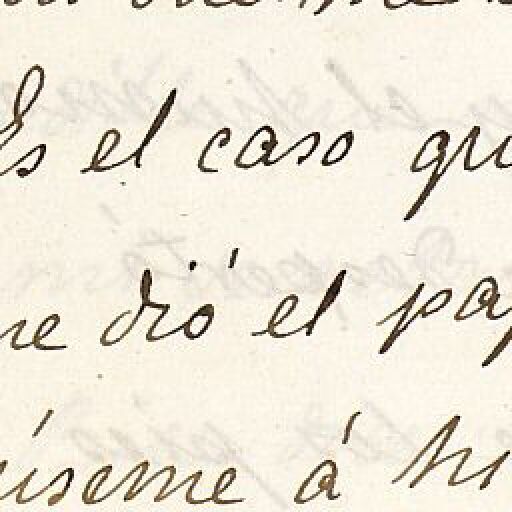 Es el caso qu
me dió el pap
úseme á hi